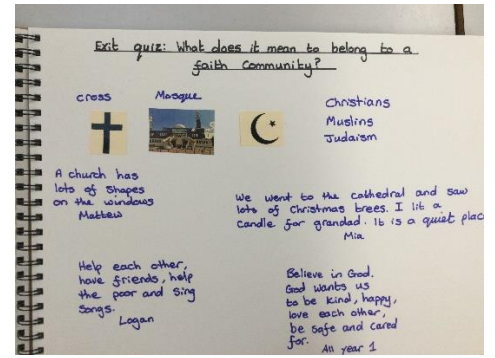 Exit quiz: What does it mean to belong to a
faith Community?
cross
Mosque
Christians
Muslims
Judaism
A church has
lots of shapes
on the windows
Mattew
We went to the cathedral and saw
lots of Christmas trees. I lit a
candle for grandad. It is a quiet place
Mia
Help each other,
have friends, help
the poor and sing
songs.
Logan
Believe in God.
God wants us
to be kind, happy,
love each other,
be safe and cared
for.
All year 1